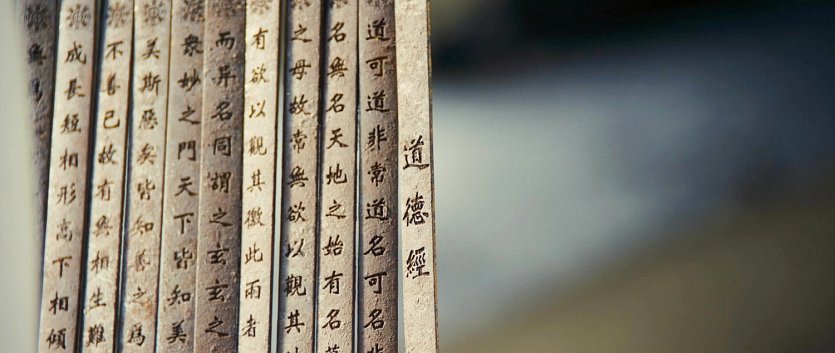 道德經
道可道非常道名可名非
名無名天地之始有名
之母故常無欲以觀其
有欲以觀其徼此兩者
而异名同謂之玄玄之
衆妙之門天下皆知美
美斯惡矣皆知善之為
不善已故有無相生難
成長短相形高下相傾
無為